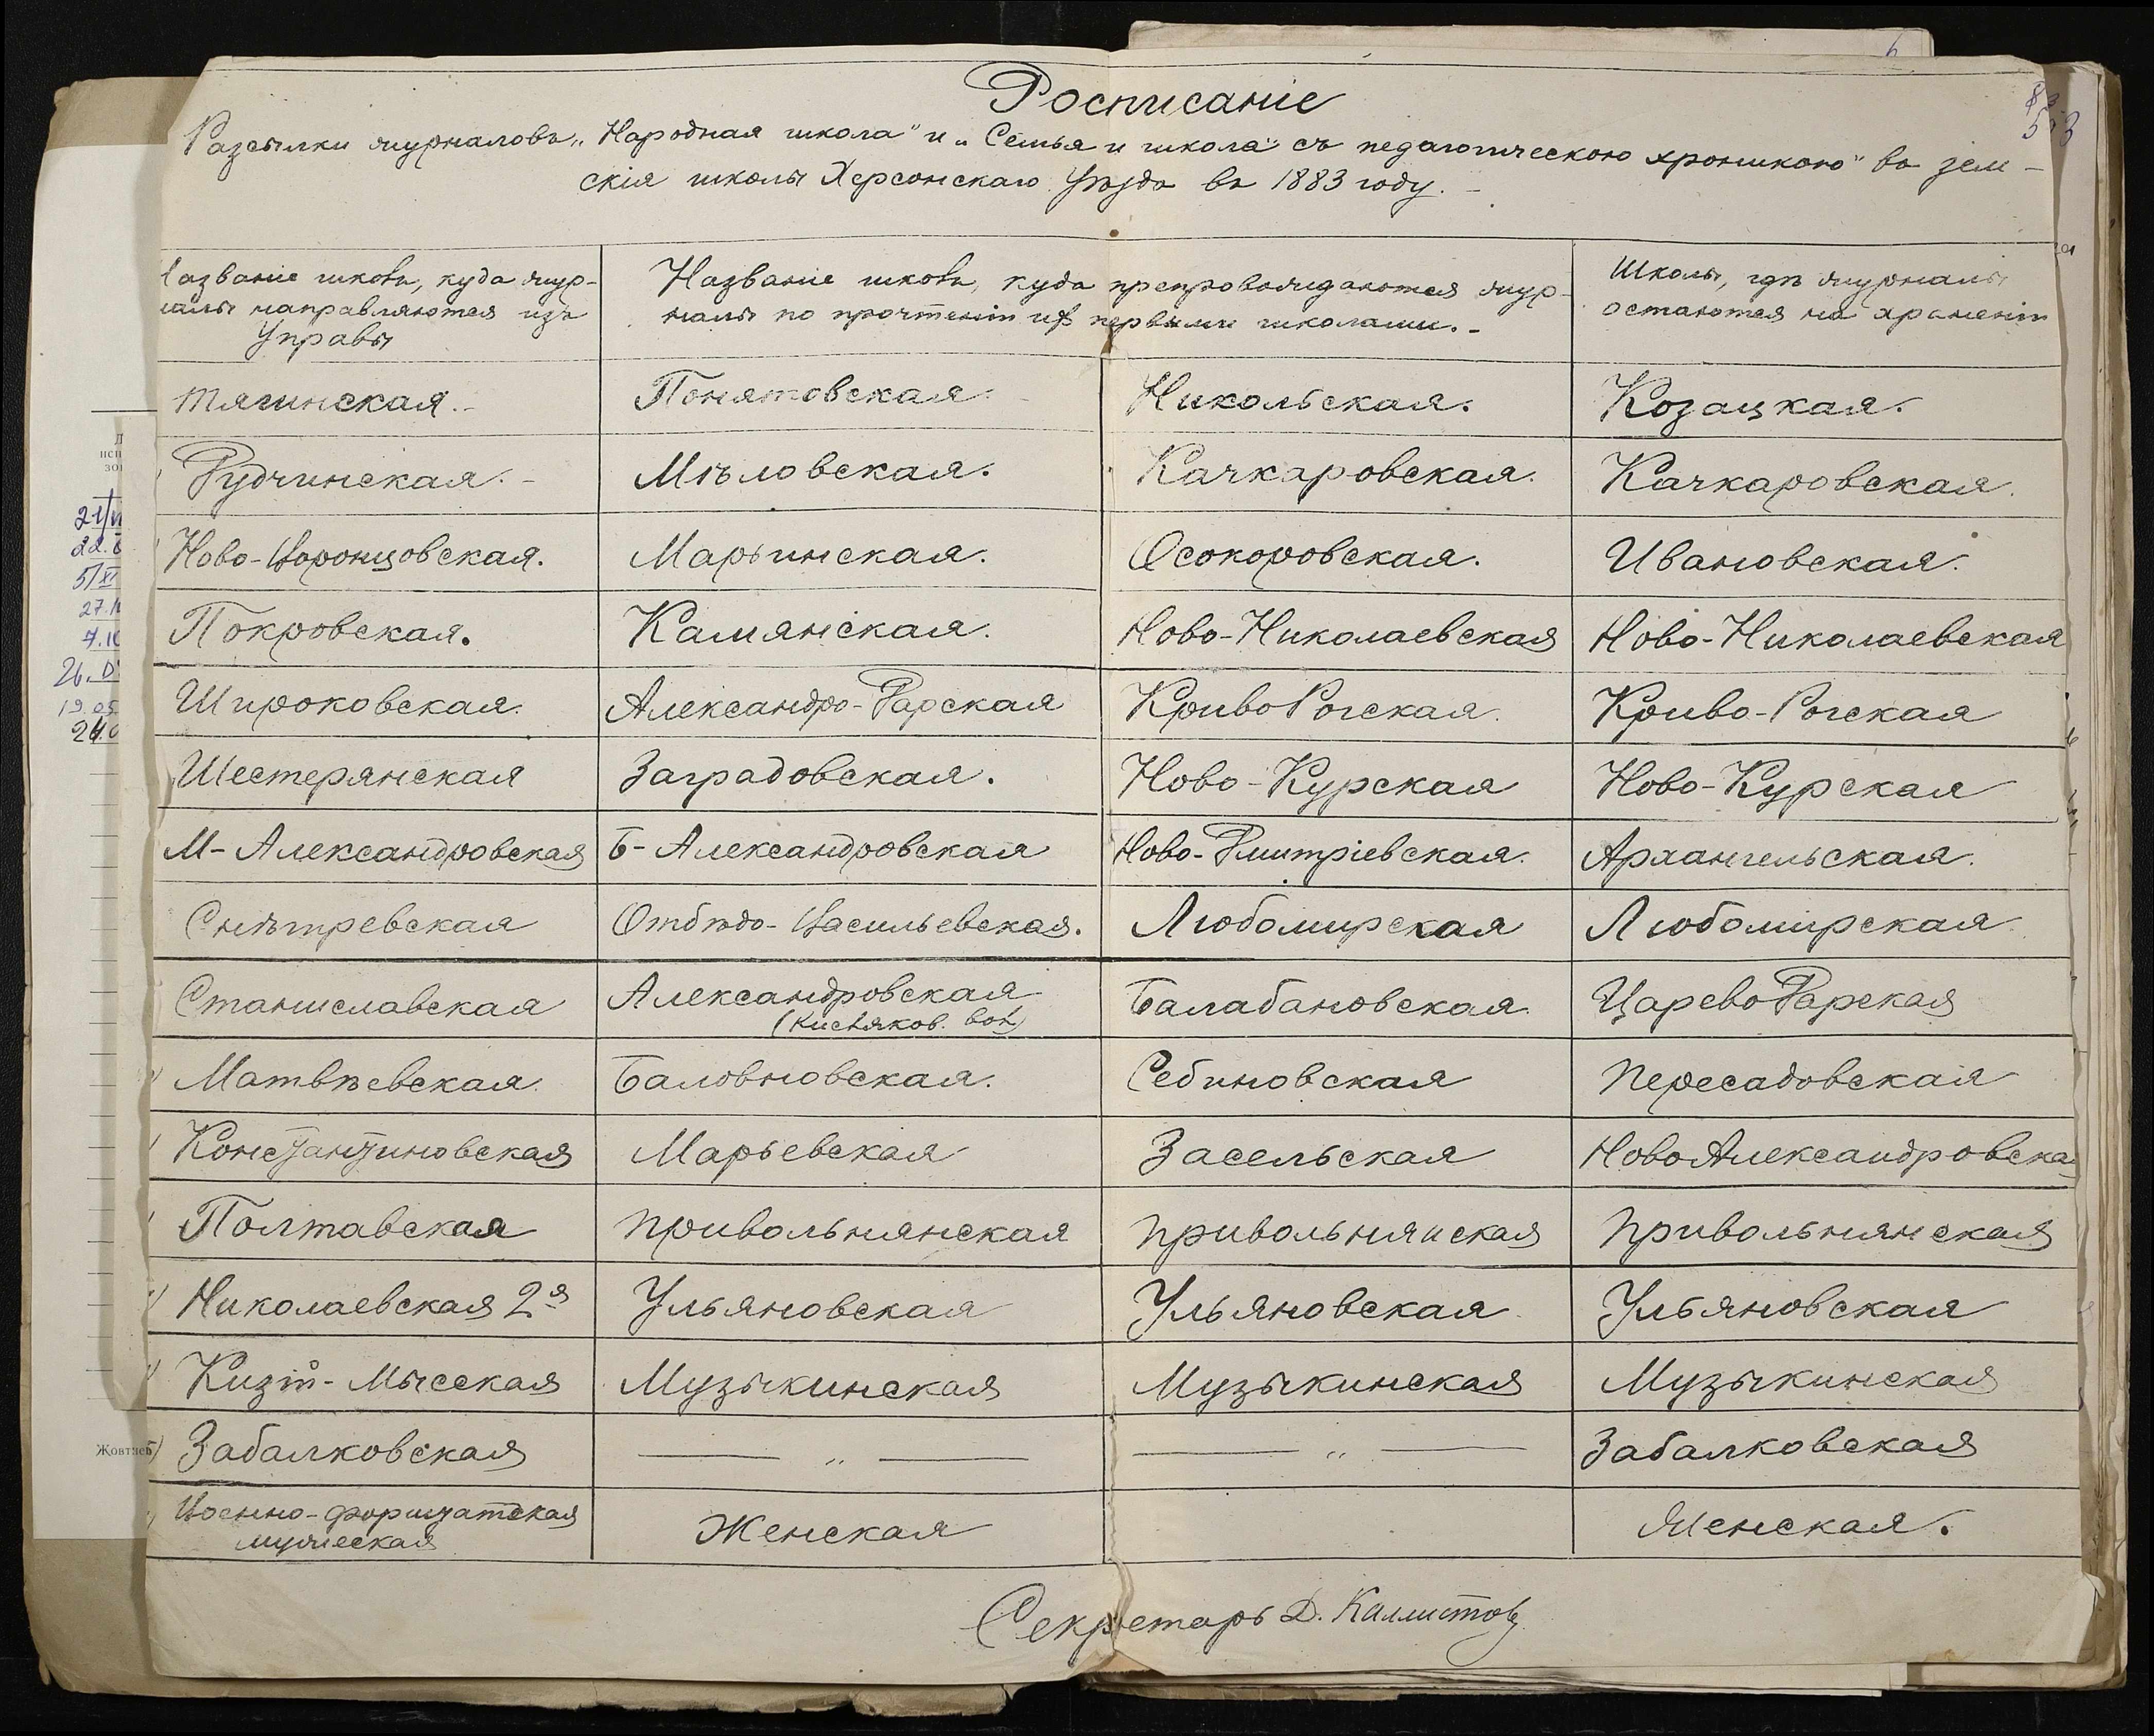 Росписаніе
Разсылки журналовъ „Народная школа“ и „Семья и школа съ педагогическою хроникою“ въ зем-
скія школы Херсонскаго Уѣзда въ 1883 году. -
Названіе школъ, куда жур-
налы направляются изъ
Управы
Названіе школъ, куда препровождаются жур-
налы по прочтеніи ихъ первыми школами. -
Школы, гдѣ журналы
остаются на храненіи
Тягинская. - Понятовская. - Никольская. Козацкая.
Дудчинская. - Мѣловская. Качкаровская. Качкаровская.
Ново-Воронцовская. Марьинская. Осокоровская. Ивановская.
Покровская. Камянская. Ново-Николаевская Ново-Николаевская
Широковская. Александро-Дарская КривоРогская. Криво-Рогская
Шестерянская Заградовская. Ново-Курская Ново-Курская
М-Александровская Б-Александровская Ново-Дмитріевская. Архангельская.
Снѣгиревская Отбѣдо-Васильевская. Любомирская Любомирская
Станиславская Александровская Балабановская ЦаревоДарская
(Кисляков. вол)
Матвѣевская. Баловновская. Себиновская Пересадовская
Константиновская Марьевская Засельская НовоАлександровская
Полтавская Привольнянская Привольнянская Привольнянская
Николаевская 2я Ульяновская Ульяновская Ульяновская
Кизій-Мысская Музыкинская Музыкинская Музыкинская
Забалковская — „ — — „ — Забалковская
Военно-форштатская Женская Женская.
мужеская
Секретарь Д. Калистовъ